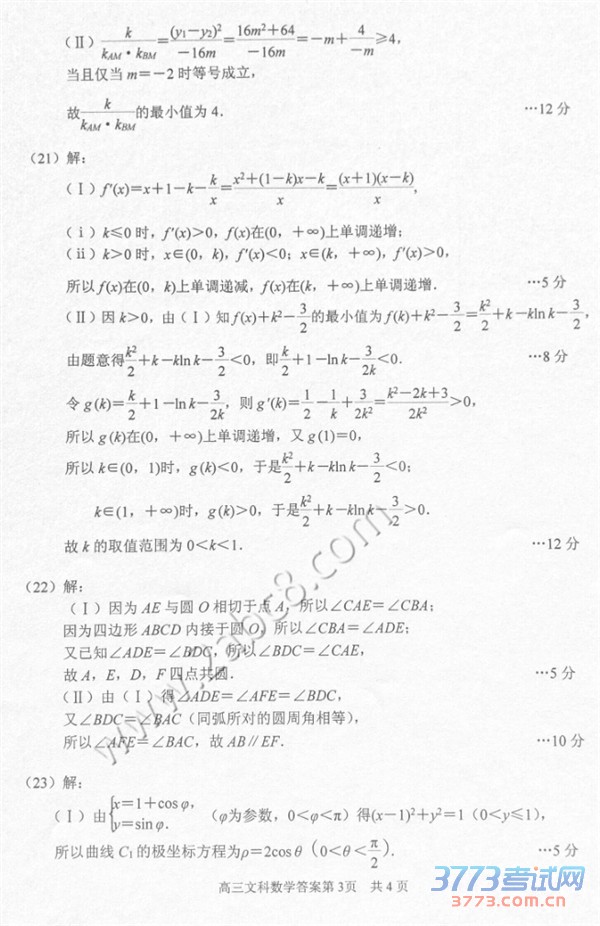 (Ⅱ) k/(k_AM·k_BM)=(y₁-y₂)²/(-16m)=(16m²+64)/(-16m)=-m+4/(-m)≥4,
当且仅当 m=-2 时等号成立,
故 k/(k_AM·k_BM) 的最小值为 4. …12 分
(21) 解:
(Ⅰ) f′(x)=x+1-k-k/x=(x²+(1-k)x-k)/x=((x+1)(x-k))/x,
(ⅰ) k≤0 时, f′(x)>0, f(x)在(0, +∞)上单调递增;
(ⅱ) k>0 时, x∈(0, k), f′(x)<0; x∈(k, +∞), f′(x)>0,
所以 f(x)在(0, k)上单调递减, f(x)在(k, +∞)上单调递增. …5 分
(Ⅱ) 因 k>0, 由 (Ⅰ) 知 f(x)+k²-3/2 的最小值为 f(k)+k²-3/2=k²/2+k-kln k-3/2,
由题意得 k²/2+k-kln k-3/2<0, 即 k/2+1-ln k-3/(2k)<0. …8 分
令 g(k)=k/2+1-ln k-3/(2k), 则 g′(k)=1/2-1/k+3/(2k²)=(k²-2k+3)/(2k²)>0,
所以 g(k)在(0, +∞)上单调递增, 又 g(1)=0,
所以 k∈(0, 1)时, g(k)<0, 于是 k²/2+k-kln k-3/2<0;
k∈(1, +∞)时, g(k)>0, 于是 k²/2+k-kln k-3/2>0.
故 k 的取值范围为 0<k<1. …12 分
(22) 解:
(Ⅰ) 因为 AE 与圆 O 相切于点 A, 所以∠CAE=∠CBA;
因为四边形 ABCD 内接于圆 O, 所以∠CBA=∠ADE;
又已知∠ADE=∠BDC, 所以∠BDC=∠CAE,
故 A, E, D, F 四点共圆. …5 分
(Ⅱ) 由 (Ⅰ) 得∠ADE=∠AFE=∠BDC,
又∠BDC=∠BAC (同弧所对的圆周角相等),
所以∠AFE=∠BAC, 故 AB∥EF. …10 分
(23) 解:
(Ⅰ) 由{x=1+cos φ, y=sin φ. (φ为参数, 0<φ<π) 得(x-1)²+y²=1 (0<y≤1),
所以曲线 C₁ 的极坐标方程为ρ=2cos θ (0<θ<π/2). …5 分
高三文科数学答案第 3页 共 4 页
3773考试网
www.3773.com.cn